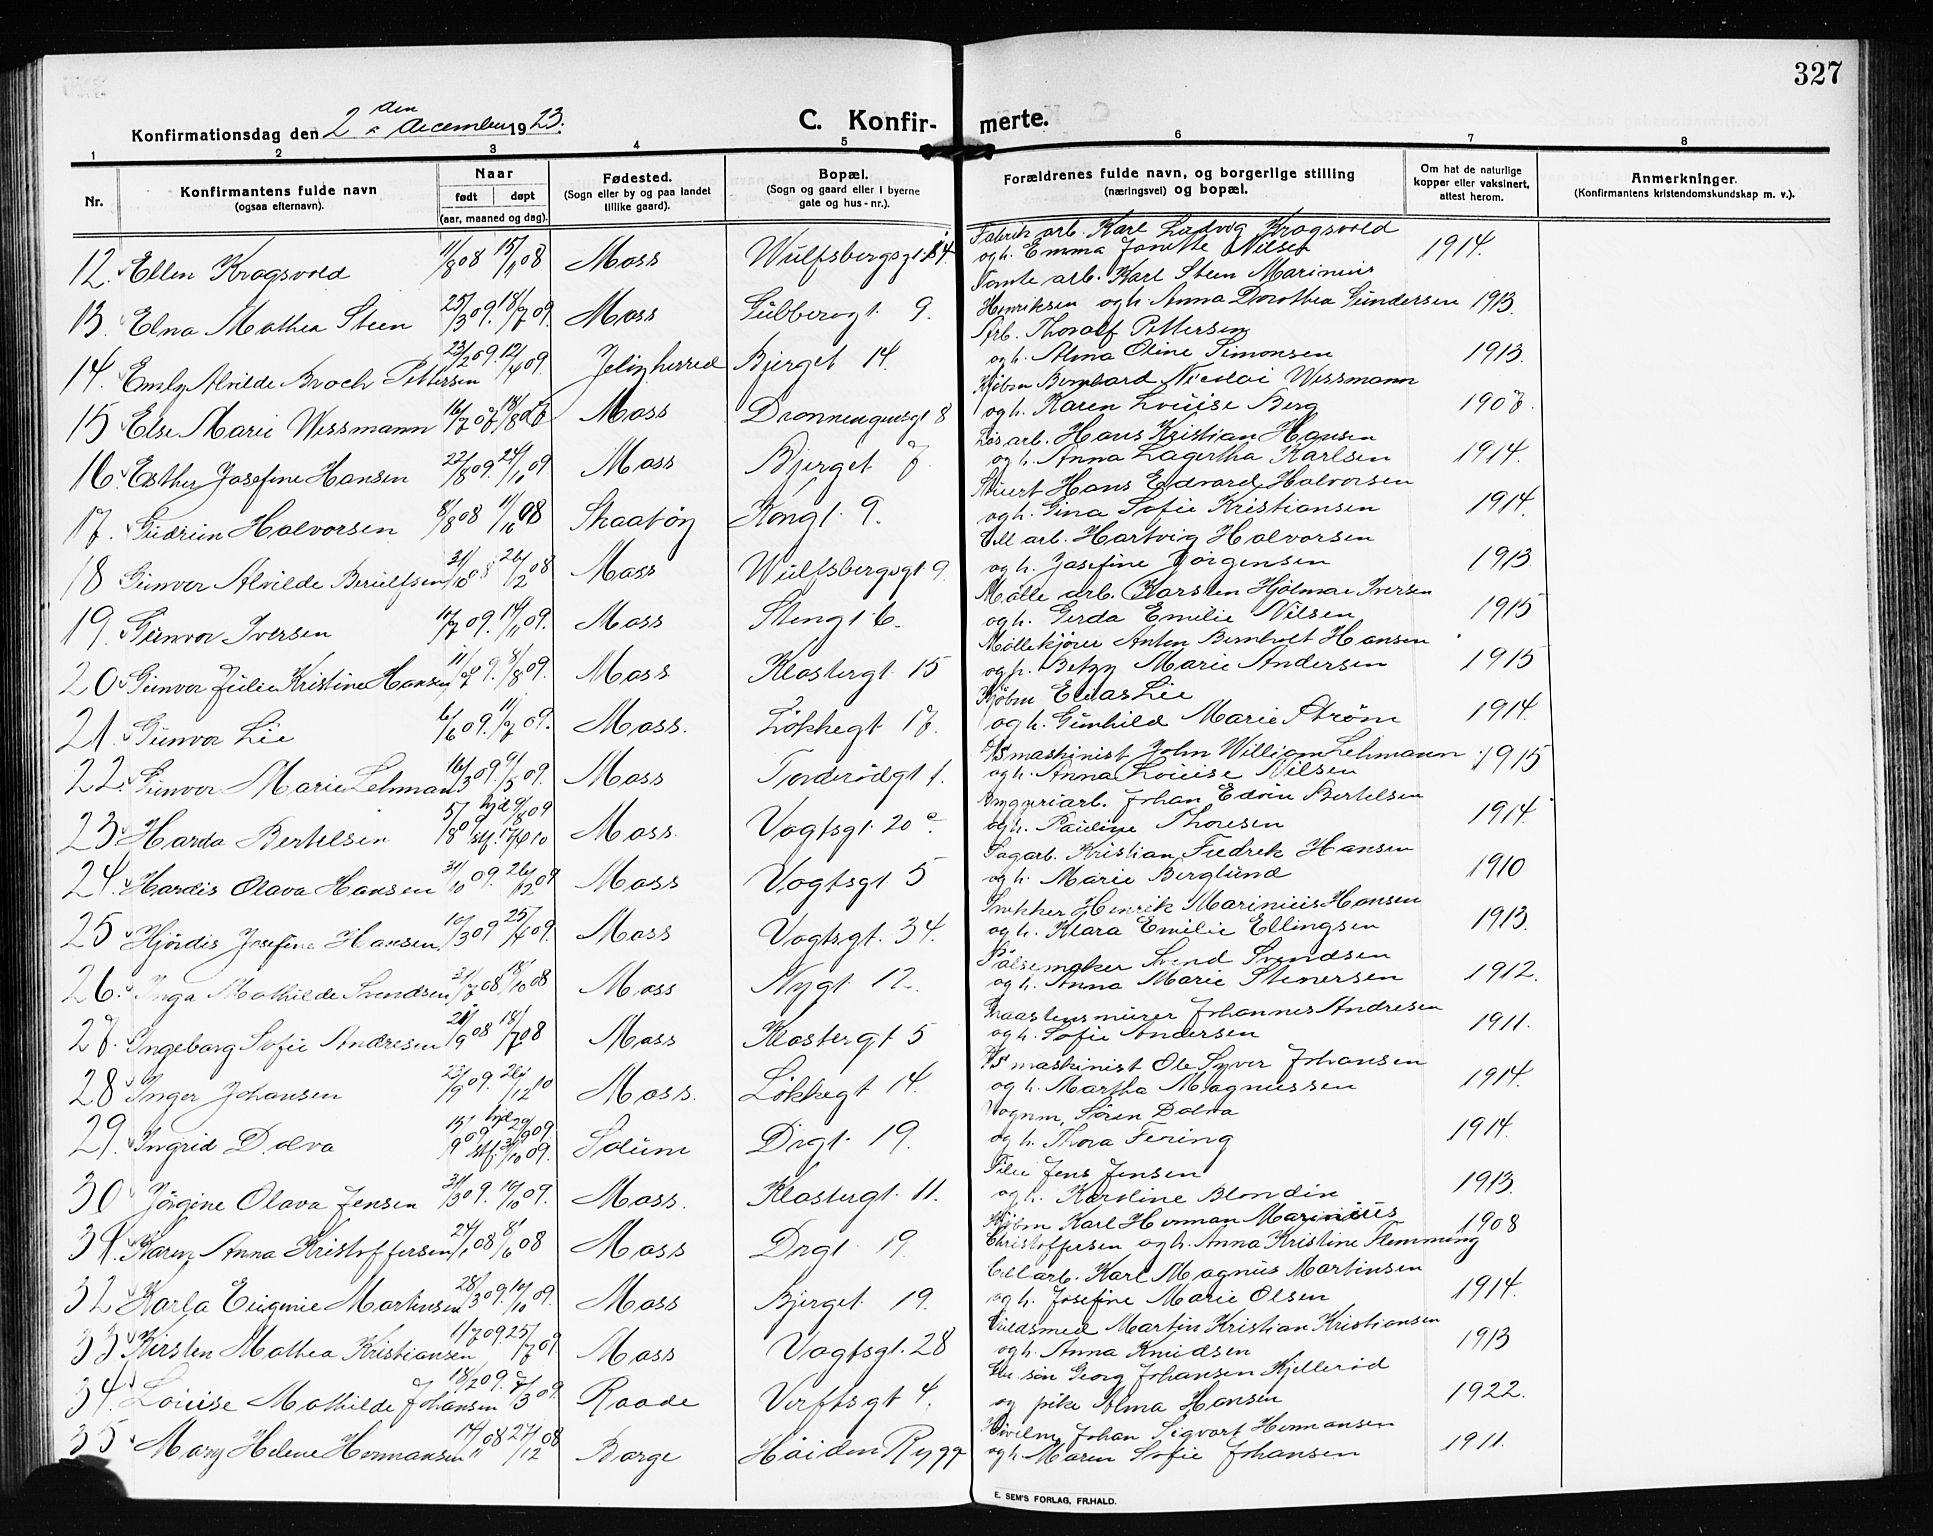 327
Konfirmationsdag den 2 den december 1923.
C. Konfirmerte.
1 2 3 4 5 6 7 8
Nr.
Konfirmantens fulde navn
(ogsaa efternavn).
Naar
født døpt
(aar, maaned og dag).
Fødested.
(Sogn eller by og paa landet
tillike gaard).
Bopæl.
(Sogn og gaard eller i byerne
gate og hus-nr.).
Forældrenes fulde navn, og borgerlige stilling
(næringsvei) og bopæl.
Om hat de naturlige
kopper eller vaksinert,
attest herom.
Anmerkninger.
(Konfirmantens kristendomskundskap m. v.).
Fabrik arb. Karl Ludvig Kragsvold
12. Ellen Kragsvold 11/8 08 15/11 08 Moss Wulfsbergsgt 14. og h. Emma Janette Nilsen 1914.
Tomte arb. Karl Steen Marinius
13. Elna Mathea Steen 25/3 09. 18/7 09. Moss Gubberogt. 9. Henriksen og h. Anna Dorothea Gundersen 1913.
Arb. Thoralf Pettersen
14. Emly Alvilde Broch Pettersen 23/2 09. 12/4 09. Jeløy herred Bjerget 14. og h. Alma Oline Simonsen 1913.
Kjøbm Bernhard Nicolai Wessmann
15 Else Marie Wessmann Moss Dronningensgt 8 og h. Karen Louise Berg 1907.
Løsarb. Hans Kristian Hansen
16. Esther Josefine Hansen 22/8 09. 24/10 09 Moss Bjerget 7. og h. Anna Lagertha Karlsen 1914.
Hans Edvard Halvorsen
17. Gudrun Halvorsen 8/8 08 11/10 08 Skaatøy Kongt. 9. og h. Gina Sofie Kristiansen 1914.
Cell arb. Hartvig Halvorsen
18 Gunvor Alvilde Berulfsen 31/10 08 26/12 08 Moss Wulfsbergsgt 9. og h. Josefine Jørgensen 1913.
Mølle arb. Karsten Hjalmar Iversen
19. Gunvor Iversen 11/7 09. 14/11 09. Moss Stengt. 6. og h. Gerda Emilie Nilsen 1915
Møllekjører Anton Bernholt Hansen
20 Gunvor Julie Kristine Hansen 11/7 09. 8/8 09. Moss Klostergt. 15 og h. Betzy Marie Andersen 1915
Kjøbm Elias Lie
21. Gunvor Lie 6/6 09. 11/7 09. Moss. Løkkegt 17. og h. Gunhild Marie Strøm 1914.
maskinist John William Lehmann
22. Gunvor Marie Lehman 16/3 09. 9/5 09. Moss Torderødgt 1. og h. Anna Louise Nilsen 1915
Bryggeriarb. Johan Edvin Bertelsen
23. Harda Bertelsen 5/8 09 hjd 9/8 09 stf. 17/4 10 Moss. Vogtsgt. 20 c. og h. Pauline Thoresen 1914.
Sagarb. Kristian Fredrik Hansen
24. Hardis Olava Hansen 31/10 09. 26/12 09 Moss Vogtsgt. 5 og h. Marie Berglund 1910
Snekker Henrik Marinius Hansen
25 Hjørdis Josefine Hansen 10/3 09 25/4 09. Moss Vogtsgt. 34. og h. Klara Emilie Ellingsen 1913.
Pølsemaker Svend Svendsen
26. Inga Mathilde Svendsen 31/7 08 18/10 08 Moss Nygt. 12. og h. Anna Marie Stenersen 1912.
Graastensmurer Johannes Andresen
27. Ingeborg Sofie Andresen Moss Klostergt 5 og h. Sofie Andersen 1911.
maskinist Ole Syver Johansen
28 Inger Johansen 23/9 09. 26/12 10 Moss. Løkkegt 14. og h. Martha Magnussen 1914.
Vognm. Søren Dolva
29. Ingrid Dolva 15/9 09 hjd 29/9 09. stf. 31/10 09. Solum Drgt. 19. og h. Thora Fering 1914.
Filer Jens Jensen
30 Jørgine Olava Jensen 31/3 09. 10/10 09. Moss. Klostergt. 11. og h. Karoline Blondin 1913.
Kjøbm Karl Herman Marinius
31. Karen Anna Kristoffersen 27/1 08 8/6 08 Moss Drgt 19. Christoffersen og h. Anna Kristine Flemming 1908
Cell arb. Karl Magnus Martinsen
32 Karla Eugenie Martinsen 28/3 09. 10/10 09. Moss Bjerget. 19. og h. Josefine Marie Olsen 1914.
Guldsmed Martin Kristian Kristiansen
33 Kirsten Mathea Kristiansen 1/7 09. 25/7 09 Moss Vogtsgt. 28 og h. Anna Knudsen 1913
søn Georg Johansen Kjellerød
34. Louise Mathilde Johansen 18/2 09. 7/3 09. Raade Verftsgt 4. og pike Alma Hansen 1922.
Johan Sigvart Hermansen
35 Mary Helene Hermansen 14/11 08 27/12 08 Borge Høiden Rygge og h. Maren Sofie Johansen 1911.
E. SEM'S FORLAG, FR.HALD.